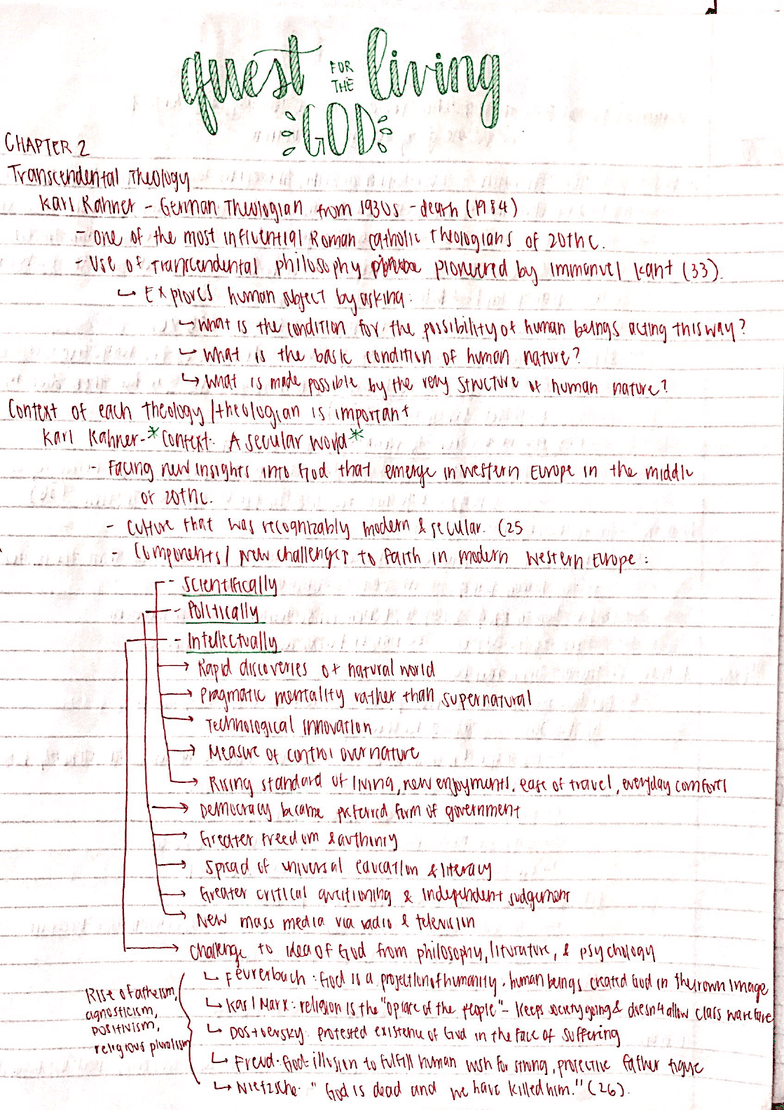 quest FOR THE living
GOD
CHAPTER 2
Transcendental Theology
Karl Rahner - German Theologian from 1930s - death (1984)
- One of the most influential Roman Catholic Theologians of 20thc.
- Use of Transcendental philosophy pioneered by Immanuel Kant (33)
↳ Explores human subject by asking:
↳ What is the condition for the possibility of human beings acting this way?
↳ What is the basic condition of human nature?
↳ What is made possible by the very structure of human nature?
Context of each theology/theologian is important
Karl Rahner-*Context: A secular world*
- Facing new insights into God that emerge in Western Europe in the middle
of 20thc.
- Culture that was recognizably modern & secular. (25
- Components/ new challenges to faith in modern Western Europe:
- Scientifically
- Politically
- Intellectually
→ Rapid discoveries of natural world
→ Pragmatic mentality rather than supernatural
→ Technological innovation
→ Measure of control over nature
→ Rising standard of living, new enjoyments, ease of travel, everyday comforts
→ Democracy became preferred form of government
→ Greater freedom & authority
→ Spread of universal education & literacy
→ Greater critical questioning & independent judgement
→ New mass media via radio & television
→ Challenge to idea of God from philosophy, literature, & psychology
Rise of atheism,
agnosticism,
positivism,
religious pluralism
↳ Feuerbach: God is a projection of humanity. human beings created God in their own image
↳ Karl Marx: religion is the "opiate of the people" - keeps society going & doesn't allow class warfare
↳ Dostoevsky: protested existence of God in the face of suffering
↳ Freud: God: illusion to fulfill human wish for strong, protective father figure
↳ Nietzsche: "God is dead and we have killed him." (26).